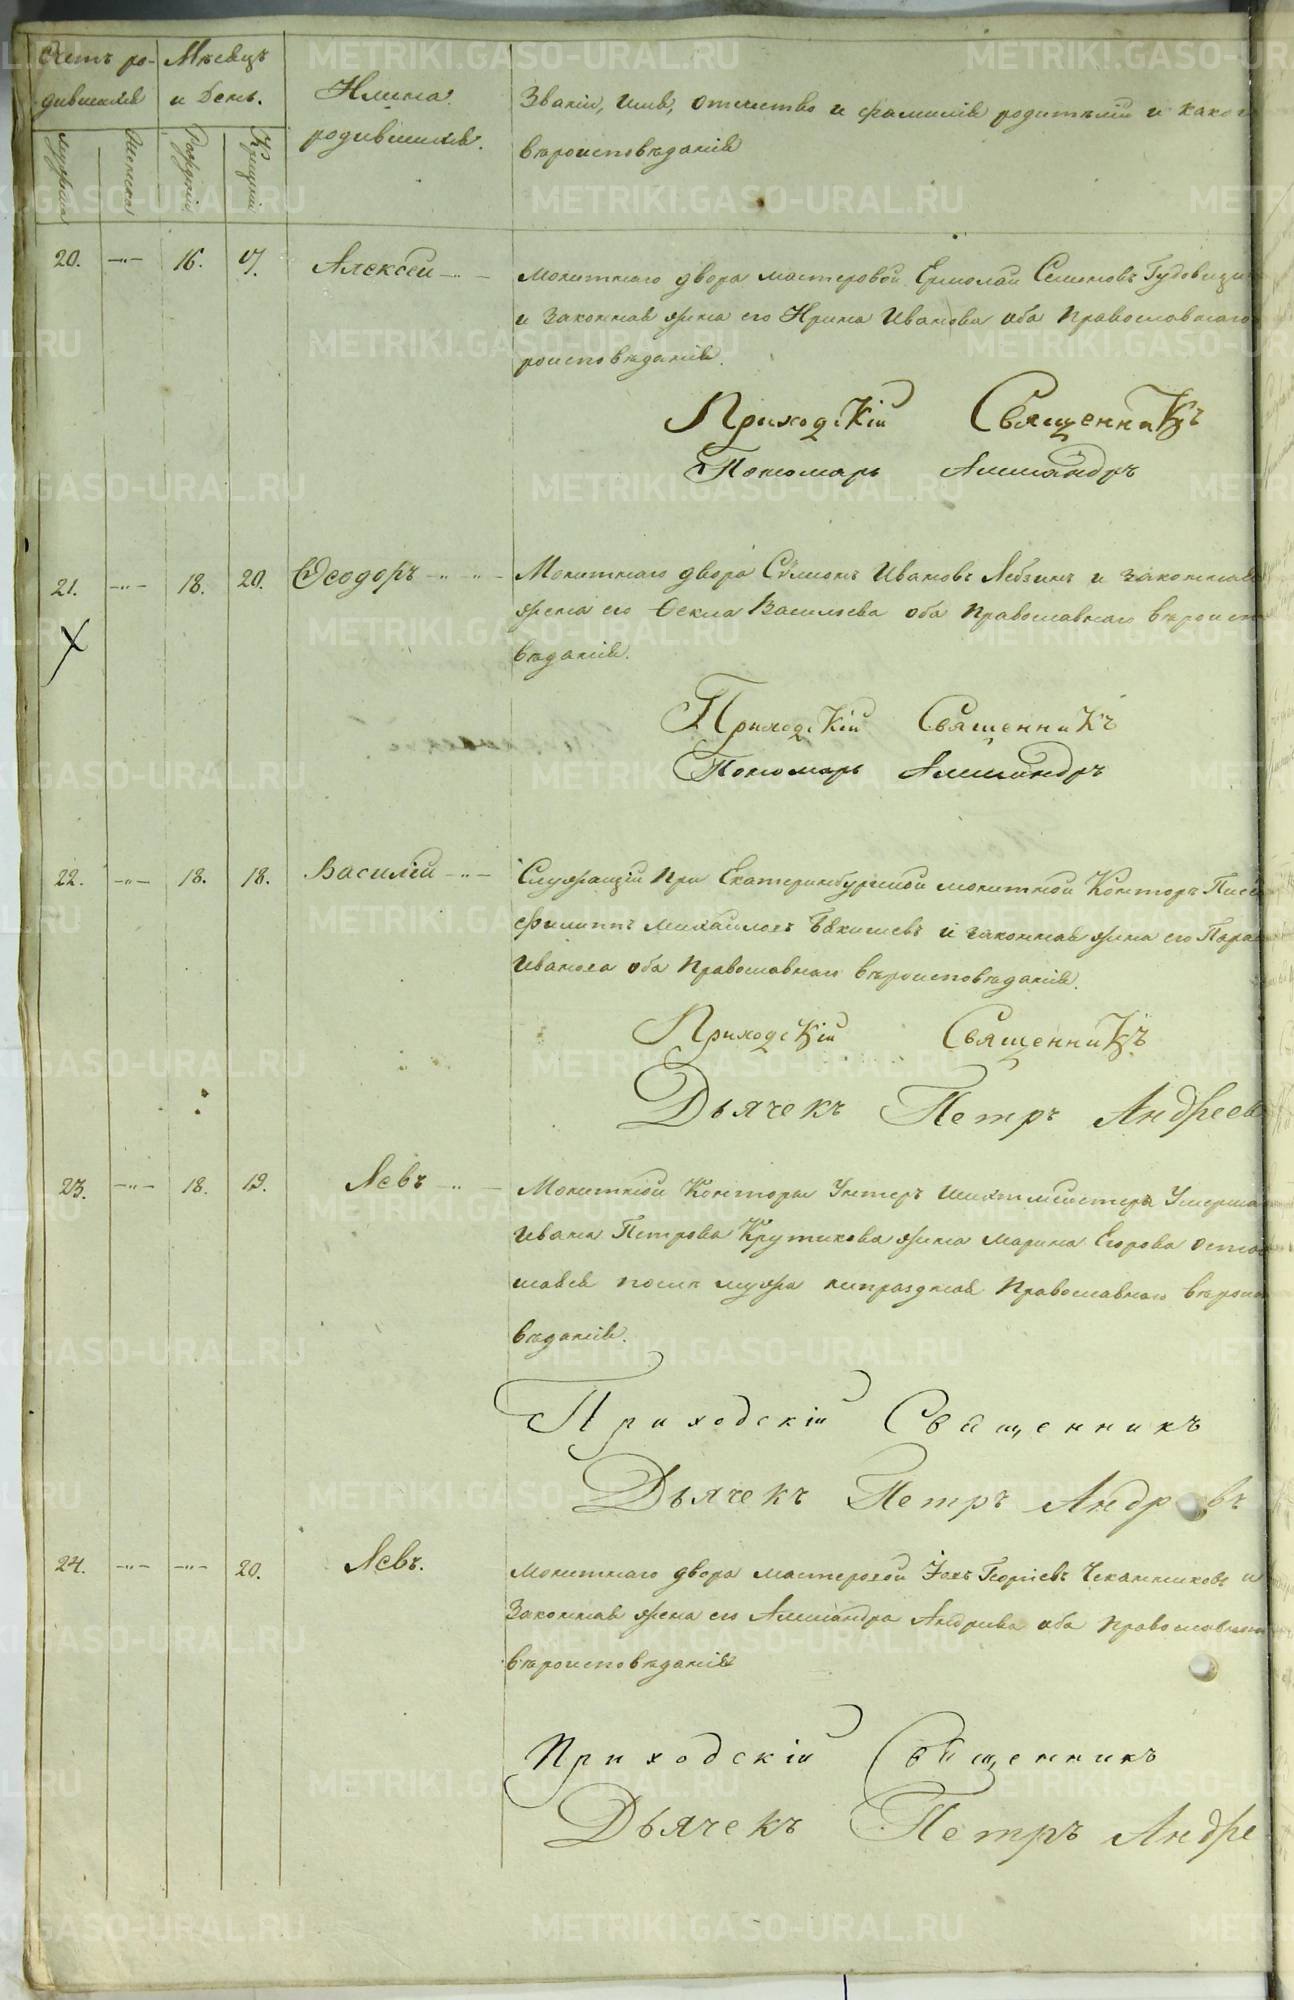 Счетъ ро- Мѣсяцъ
дившихся и День.
Имена
родившихся.
Званіе, имя, отечество и фамилія родителей и какого
вѣроисповѣданія
мужеска
женска
Рожденія
Крещенія
20. —"— 16. 17. Алексѣй —"—
Монетнаго двора мастеровой Ермолай Семеновъ
и законная жена его Ирина Иванова оба Православнаго
роисповѣданія.
Приходскій Священникъ
Пономарь Александръ
21. —"— 18. 20. Ѳеодоръ —"—"—
Монетнаго двора Симионъ Ивановъ Лебзинъ и законная
жена его Ѳекла Васильева оба Православнаго вѣроиспо
вѣданія.
Приходскій Священникъ
Пономарь Александръ
22. —"— 18. 18. Василій —"—
Служащій при Екатеринбургской монетной Конторѣ Писе
Филиппъ Михайловъ и законная жена его Пара
Иванова оба Православнаго вѣроисповѣданія.
Приходскій Священникъ
Дьячекъ Петръ Андреев
23. —"— 18. 19. Левъ —"—
Монетной Конторы Унтеръ Шихтмейстера Умерша
Ивана Петрова Крутикова жена Марина Егорова оста
шаяся послѣ мужа непраздная Православнаго вѣроиспо
вѣданія.
Приходскій Священникъ
Дьячекъ Петръ Андр въ
24. —"— —"— 20. Левъ.
Монетнаго двора мастеровой Георгіевъ Чеканниковъ и
Законная жена его Александра Андреева оба Православнаго
вѣроисповѣданія
Приходскій Священникъ
Дьячекъ Петръ Андре
METRIKI.GASO-URAL.RU